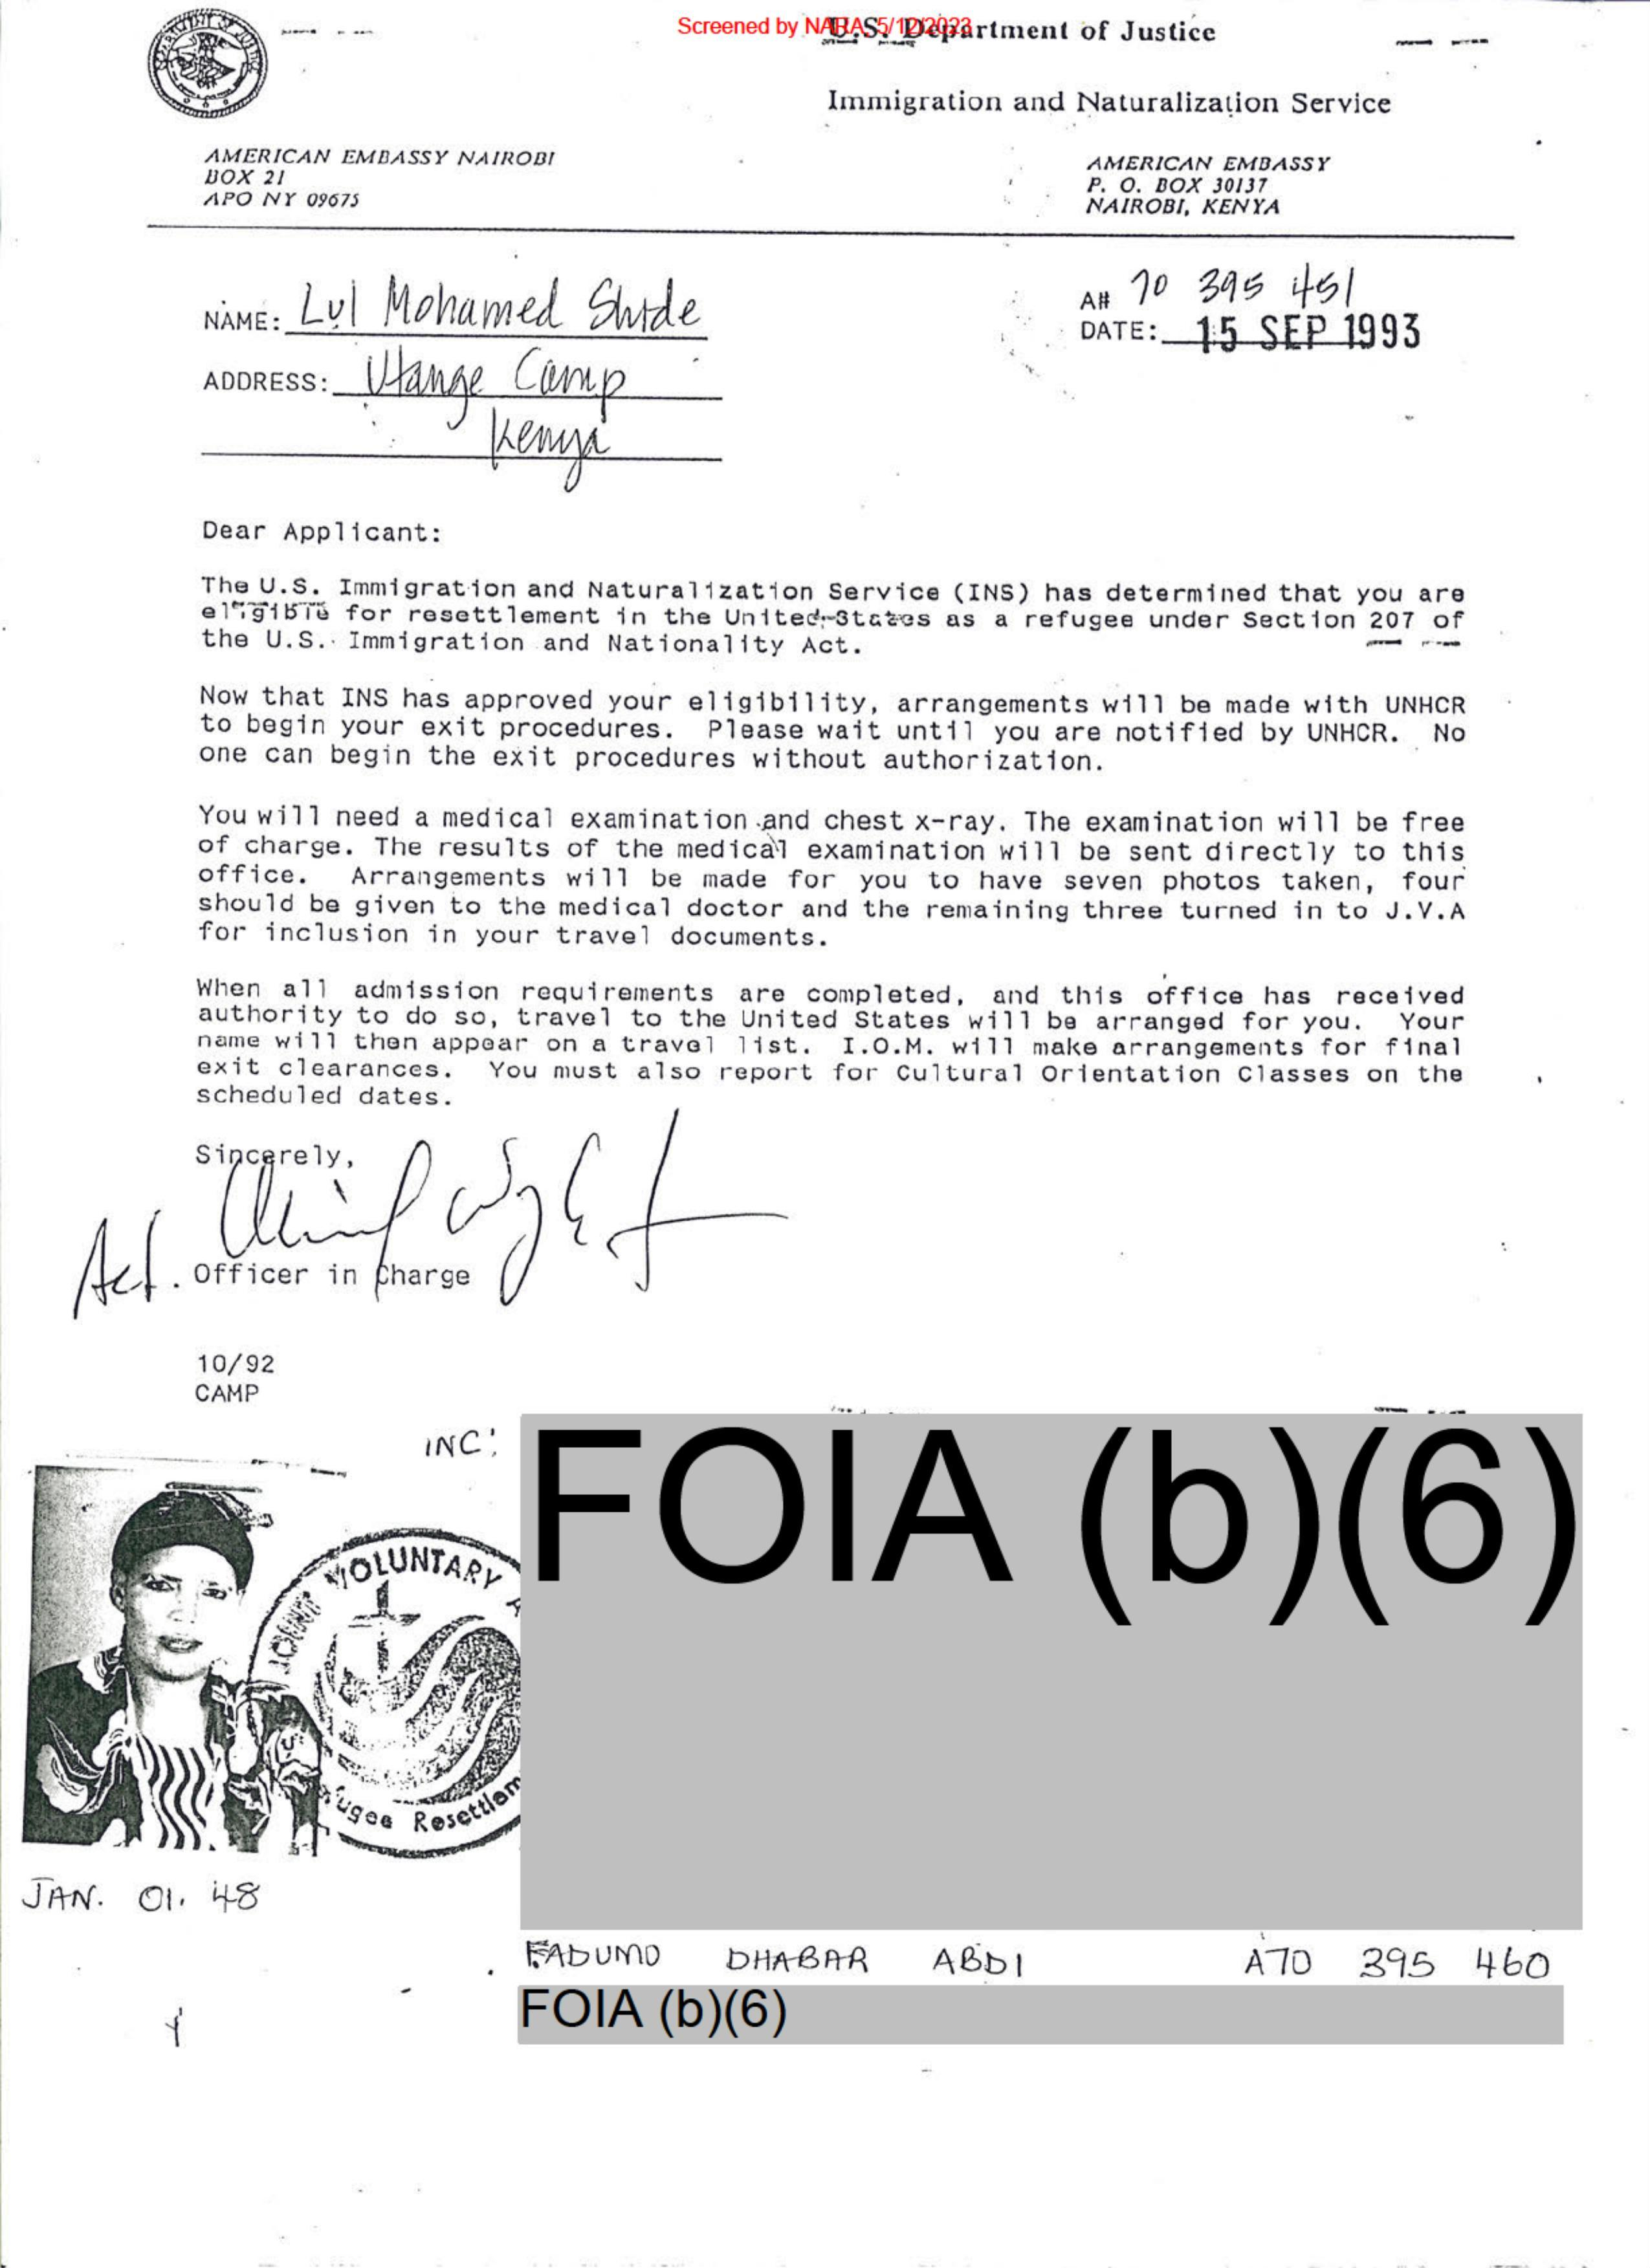 Screened by NARA 5/12/2023
U.S. Department of Justice
Immigration and Naturalization Service
AMERICAN EMBASSY NAIROBI
BOX 21
APO NY 09675
AMERICAN EMBASSY
P. O. BOX 30137
NAIROBI, KENYA
NAME: Lul Mohamed Shide
ADDRESS: Utange Camp
Kenya
A# 70 395 451
DATE: 15 SEP 1993
Dear Applicant:
The U.S. Immigration and Naturalization Service (INS) has determined that you are
eligible for resettlement in the United States as a refugee under Section 207 of
the U.S. Immigration and Nationality Act.
Now that INS has approved your eligibility, arrangements will be made with UNHCR
to begin your exit procedures. Please wait until you are notified by UNHCR. No
one can begin the exit procedures without authorization.
You will need a medical examination and chest x-ray. The examination will be free
of charge. The results of the medical examination will be sent directly to this
office. Arrangements will be made for you to have seven photos taken, four
should be given to the medical doctor and the remaining three turned in to J.V.A
for inclusion in your travel documents.
When all admission requirements are completed, and this office has received
authority to do so, travel to the United States will be arranged for you. Your
name will then appear on a travel list. I.O.M. will make arrangements for final
exit clearances. You must also report for Cultural Orientation Classes on the
scheduled dates.
Sincerely,
Act. Officer in Charge
10/92
CAMP
INC:
FOIA (b)(6)
JOINT VOLUNTARY
ugee Resettlem
JAN. 01. 48
FADUMO DHABAR ABDI A70 395 460
FOIA (b)(6)